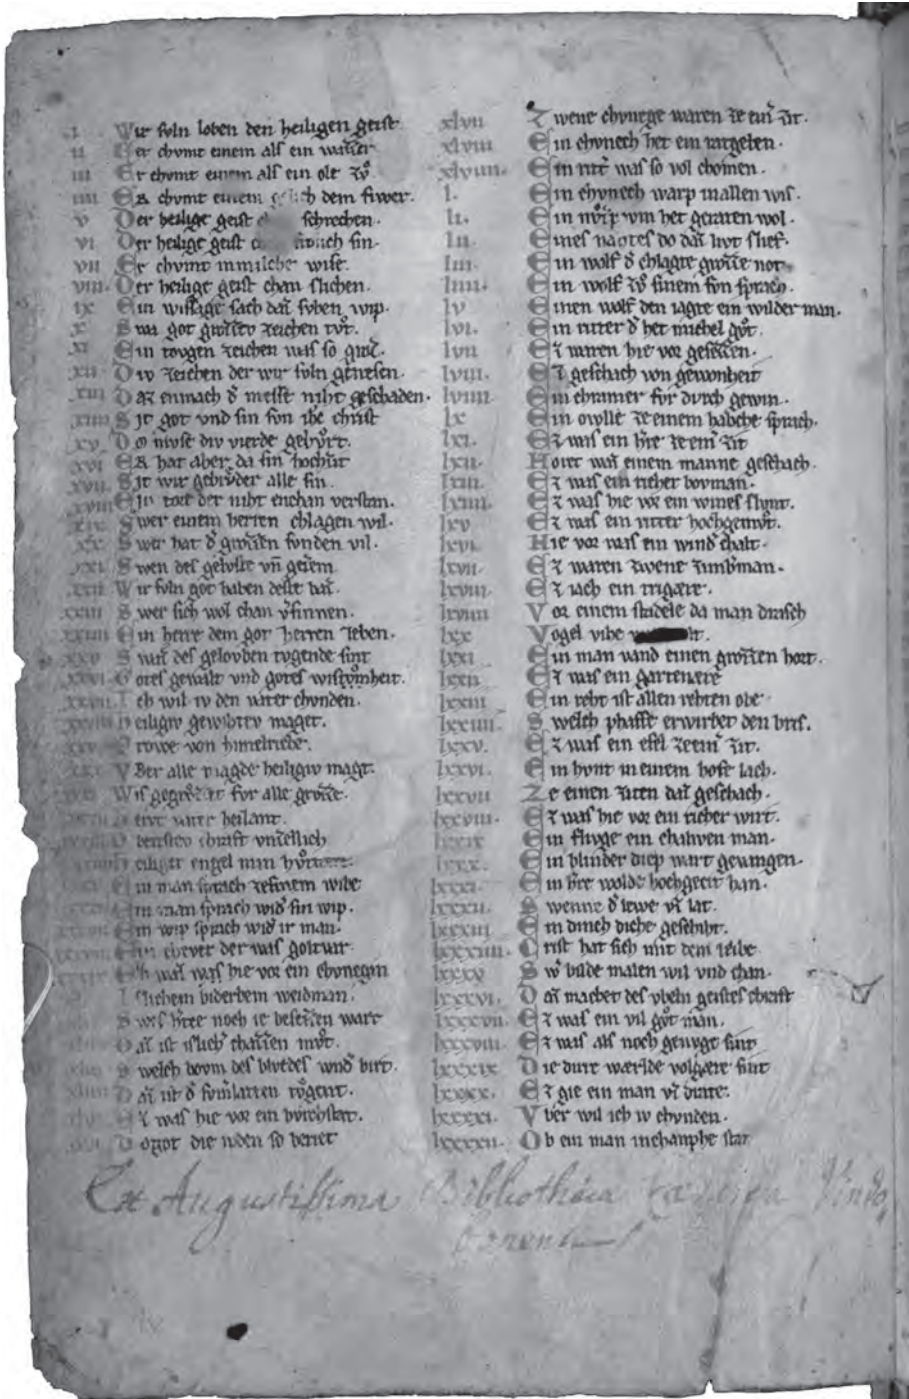 .i. Wir svln loben den heiligen geist
ii Er chvmt einem als ein wazzer
iii Er chvmt einem als ein ole zvͦ
iiii Er chvmt einem dem fiwer.
v Der heilige geist schrechen.
vi Der heilige geist sin.
vii Er chvmt in milcher wise.
viii. Der heilige geist chan slichen.
ix Ein wissage sach daz syben wip.
x Swa got groͤzziv zeichen tvͦt.
xi Ein tovgen zeichen was so groz.
xii Div zeichen der wir svln genesen.
xiii Daz enmach d̾ messe niht geschaden.
xiiii Sit got vnd sin svn ihc christ
xv Do mvse div vierde gebvͦrt.
xvi Er hat aber da sin hochzit
xvii. Sit wir gebrvͦder alle sin.
xviii Ein tore der niht enchan verstan.
xix Swer einem herren chlagen wil.
xx Swer hat d̾ grozzen svnden vil.
xxi Swen des gelvste vn̄ gezem.
xxii Wir svln got haben deste baz.
xxiii Swer sich wol chan v̾sinnen.
xxiiii Ein herre dem got herren leben.
xxv Swaz des gelovben tvgende sint
xxvi Gotes gewalt vnd gotes wistvͦmheit.
xxvii Ich wil iv den witer chvnden.
xxviii Heiligiv gewihtev maget.
Frowe von himelriche.
Vber alle magde heiligiv magt.
Wis gegrvͦzzet fvr alle grozze.
heilant.
chraft
heiliger engel min
Ein man sprach zesinem wibe
Ein man sprach wid̾ sin wip.
Ein wip sprach wid̾ ir man.
Ein chever der was goltvar
Ez was hie vor ein chvnegin
Islichem biderbem weidman.
Swes h̾re noch ie besezzen wart
Daz ist islich chazzen mvͦt.
Swelch bovm des blvedes wnd̾ birt.
Daz ist d̾ svm̄latten tvͦgent.
Ez was hie vor ein bvrchstat.
Do got die ivden so beriet
xlvii Zwene chvnege waren ze ein̾ zit.
xlviii Ein chvnech het ein ratgeben.
xlviiii. Ein rit̾ was so vol chomen.
l. Ein chvnech warp in allen wis.
li. Ein het geraten wol.
lii Eines nahtes do daz livt slief.
liii. Ein wolf d̾ chlagte grozze not.
liiii. Ein wolf zvͦ sinem svn sprach.
lv Einen wolf den iagte ein wilder man.
lvi. Ein ritter d̾ het michel gvͦt.
lvii Ez waren hie vor gesezzen.
lviii. Ez geschach von gewonheit
lviiii. Ein chramer fvr dvrch gewin.
lx Ein ovlle ze einem habche sprach.
lxi. Ez was ein h̾re ze ein̾ zit
lxii. Horet waz einem manne geschach.
lxiii. Ez was ein richer bovman.
lxiiii. Ez was hie vor ein wines slvnt.
lxv Ez was ein ritter hochgemvͦt.
lxvi. Hie vor was ein wint chalt.
lxvii. Ez waren zwene zimb̾man.
lxviii. Ez iach ein trigære.
lxviiii Vor einem stadele da man drasch
lxx Vogel vihe
lxxi. Ein man vand einen grozzen hort.
lxxii Ez was ein gartenære
lxxiii Ein reht ist allen rehten obe
lxxiiii. Swelch phaffe erwirbet den bris.
lxxv. Ez was ein esel zeein̾ zit.
lxxvi. Ein hvnt in einem hofe lach.
lxxvii Ze einen ziten daz geschach.
lxxviii. Ez was hie vor ein richer wirt.
lxxix Ein flivge ein chalwen man.
lxxx. Ein blinder diep wart gevangen.
lxxxi. Ein h̾re wolde hochgezit han.
lxxxii. Swenne d̾ iewe vz lat.
lxxxiii Ein dinch diche geschiht.
lxxxiiii. Crist hat sich mit dem leibe
lxxxv Sw̾ bilde malen wil vnd chan.
lxxxvi. Daz machet des vbeln geistes chraft
lxxxvii. Ez was ein vil gvͦt man.
lxxxviii. Ez was als noch genvge sint
lxxxix Die dirr werlde volgære sint
lxxxx. Ez gie ein man vz
lxxxxi. Vber wil ich iv chvnden.
lxxxxii. Ob ein man in champhe stat
Ex Augustissima Bibliotheca Cæsarea Vindo,
bonensi